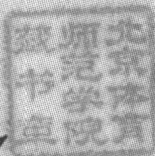 北京体育
师范学院
藏书章